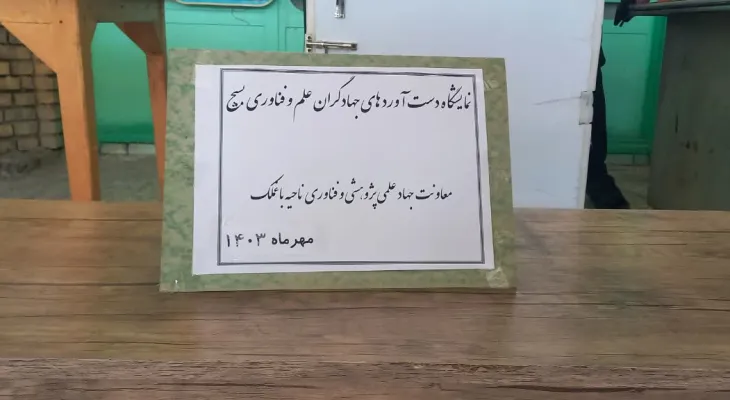 نمایشگاه دست آوردهای جهادگران علم و فناوری بسیج
معاونت جهاد علمی پژوهشی و فناوری ناحیه باغملک
مهرماه ۱۴۰۳